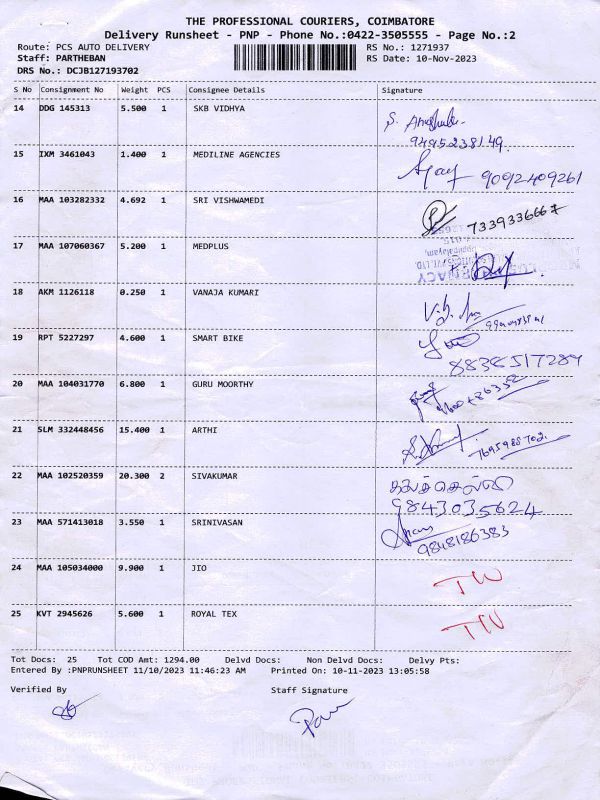 THE PROFESSIONAL COURIERS, COIMBATORE
Delivery Runsheet - PNP - Phone No.:0422-3505555 - Page No.:2
Route: PCS AUTO DELIVERY RS No.: 1271937
Staff: PARTHEBAN RS Date: 10-Nov-2023
DRS No.: DCJB127193702
S No Consignment No Weight PCS Consignee Details Signature
14 DDG 145313 5.500 1 SKB VIDHYA
9495238149
15 IXM 3461043 1.400 1 MEDILINE AGENCIES
Ajay 9092409261
16 MAA 103282332 4.692 1 SRI VISHWAMEDI
7339336667
17 MAA 107060367 5.200 1 MEDPLUS
18 AKM 1126118 0.250 1 VANAJA KUMARI
19 RPT 5227297 4.600 1 SMART BIKE
8838517289
20 MAA 104031770 6.800 1 GURU MOORTHY
21 SLM 332448456 15.400 1 ARTHI
22 MAA 102520359 20.300 2 SIVAKUMAR
9843035624
23 MAA 571413018 3.550 1 SRINIVASAN
9848186383
24 MAA 105034000 9.900 1 JIO
TW
25 KVT 2945626 5.600 1 ROYAL TEX
TW
Tot Docs: 25 Tot COD Amt: 1294.00 Delvd Docs: Non Delvd Docs: Delvy Pts:
Entered By :PNPRUNSHEET 11/10/2023 11:46:23 AM Printed On: 10-11-2023 13:05:58
Verified By Staff Signature